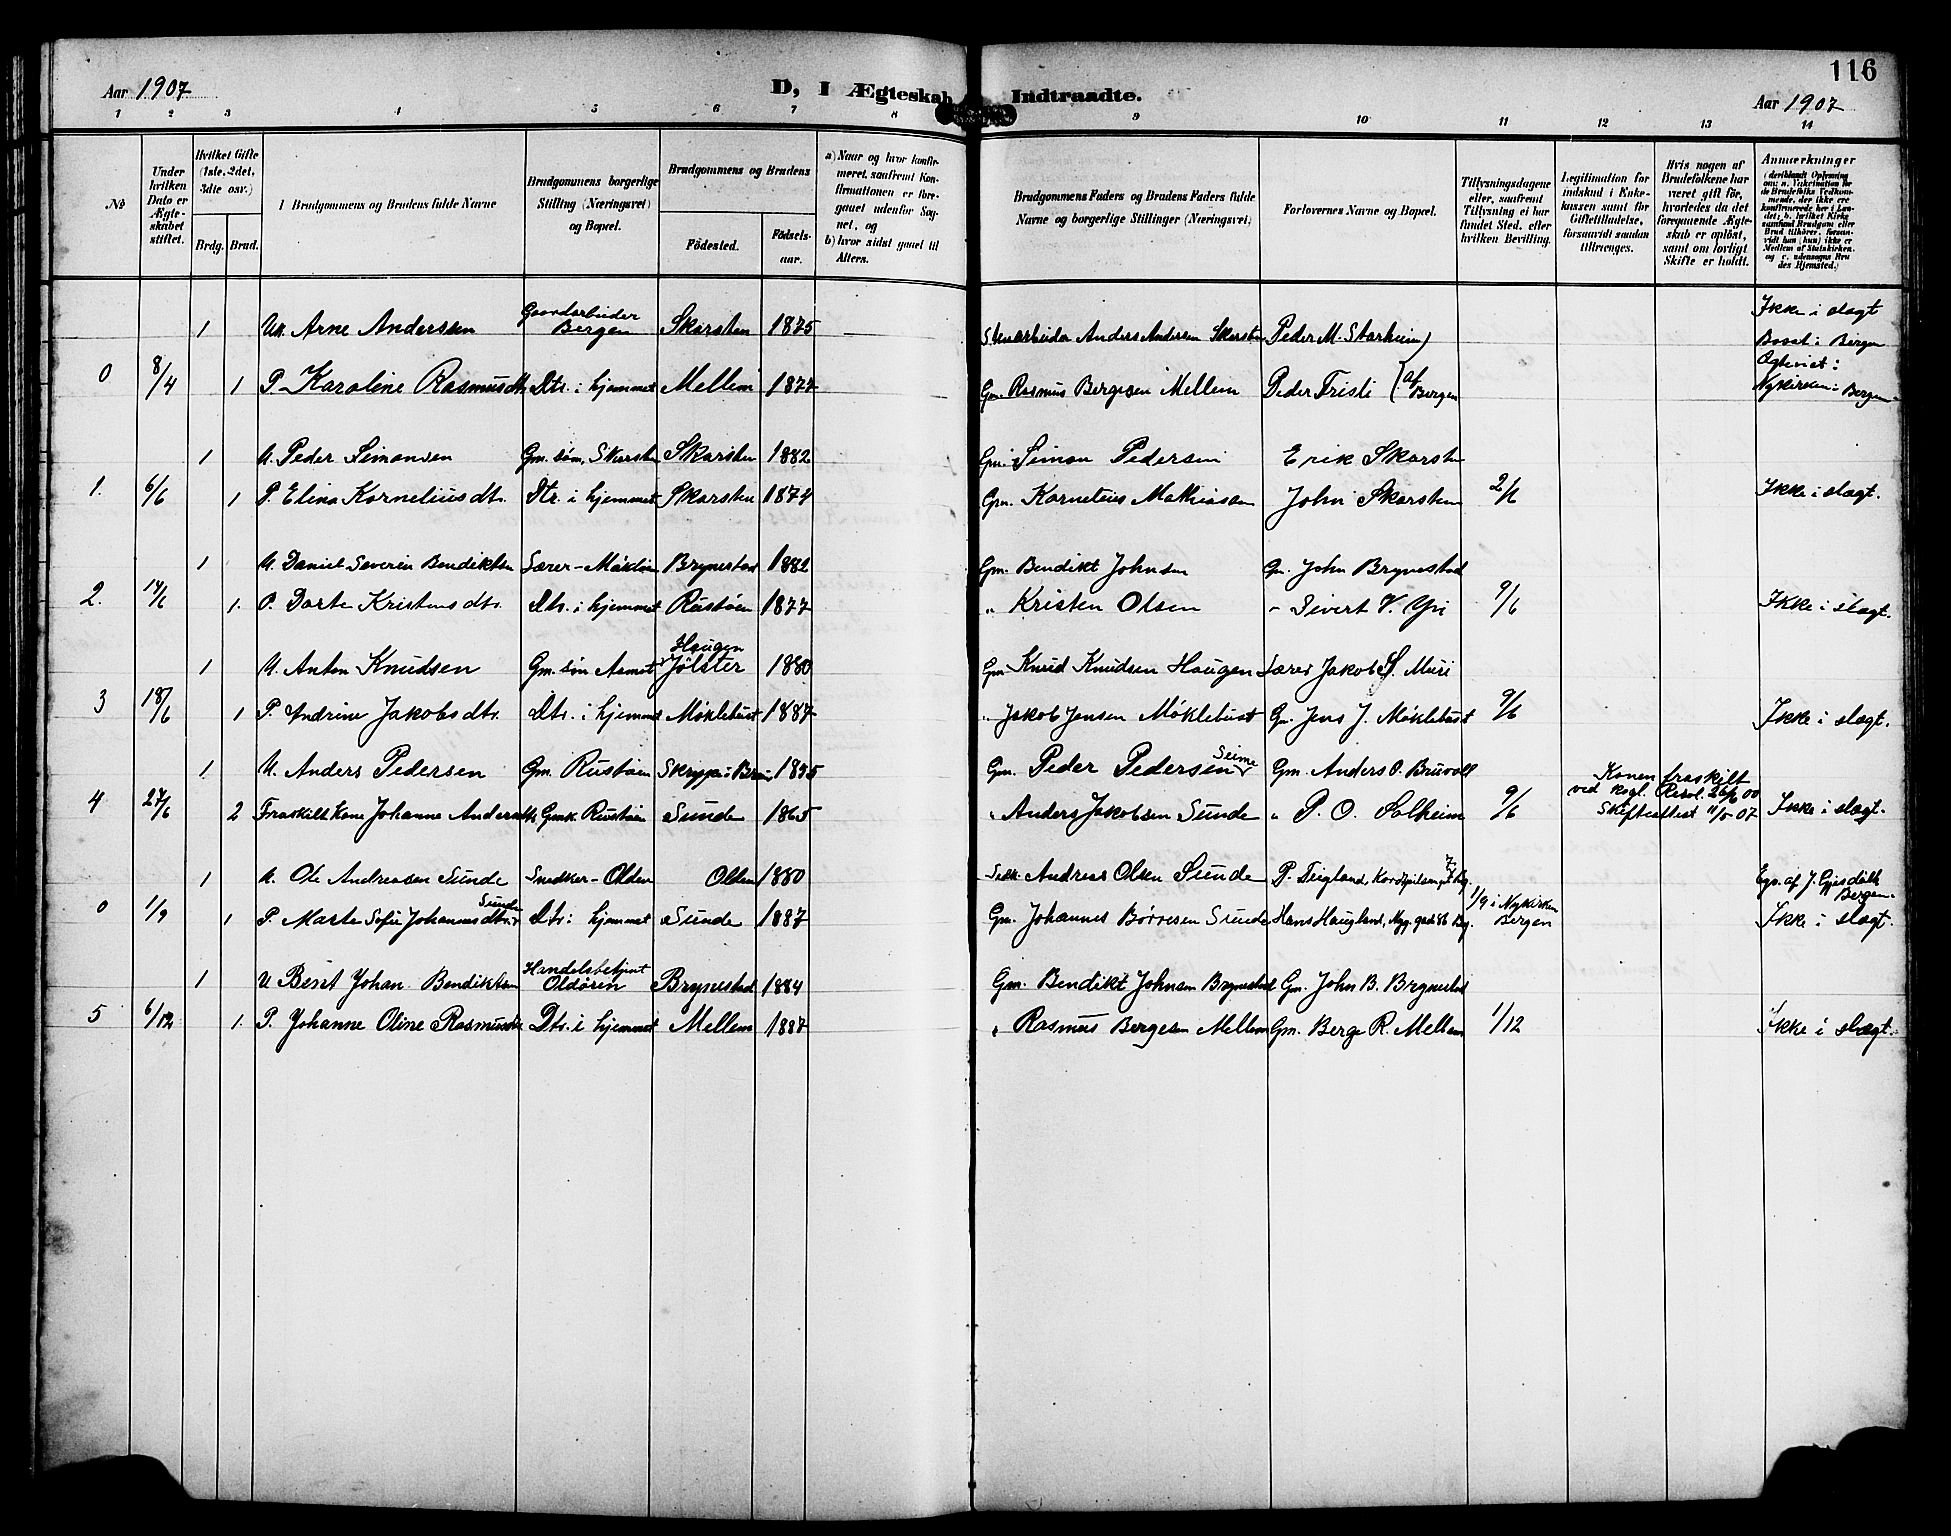 116
Aar 1907
D, I Ægteskab Indtraadte.
Aar 1907
1 2 3 4 5 6 7 8 9 10 11 12 13 14
No
Under hvilken Dato er Ægteskabet stiftet.
Hvilket Gifte (1ste, 2det, 3die osv.)
Brdg. Brud.
Brudgommens og Brudens fulde Navne
Brudgommens borgerlige Stilling (Næringsvei) og Bopæl.
Brudgommens og Brudens
Födested.
Födselsaar.
a) Naar og hvor konfirmeret, samt om Konfirmationen er foregaaet udenfor Sognet, og
b) hvor sidst gaaet til Alters.
Brudgommens Faders og Brudens Faders fulde Navne og borgerlige Stillinger (Næringsvei)
Forlovernes Navne og Bopæl.
Tillysningsdagene eller, saafremt Tillysning ei har fundet Sted, efter hvilken Bevilling.
Legitimation for indskud i Enkekassen samt for Giftetilladelse, forsaavidt saadan tiltrænges.
Hvis nogen af Brudefolkene har været gift för, hvorledes da det foregaaende Ægteskab er oplöst, samt om lovligt Skifte er holdt.
Anmærkninger
1 Uk. Arne Andersen Gaardarbeider Bergen Skarsten 1875 Anders Andersen Skarsten Peder M. Starheim Ikke i slægt
Bosat i Bergen
0 8/4 1 P. Karoline Rasmusdtr. Dtr. i hjemmet Mellem 1877 Gm. Rasmus Bergesen Mellem Peder Tristi af Bergen Ogteviet i Nykirken i Bergen.
1 U. Peder Simonsen Gm. søn, Skarsten Skarsten 1882 Gm. Simon Pedersen Erik Skarsten
1. 6/6 1 P. Elina Korneliusdtr. Dtr. i hjemmet Skarsten 1874 Gm. Kornelius Mathiassen John Skarsten 2/6 Ikke i slægt.
1 U. Daniel Severin Bendiktsen Lærer - Brynestad 1882 Gm. Bendikt Johnsen Gm. John Brynestad
2. 14/6 1. P. Dorte Kristensdtr. Dtr. i hjemmet Rustøen 1877 " Kristen Olsen - Sivert V. Yri 9/6 Ikke i slægt.
1 U. Anton Knudsen Gm. søn Haugen Jølster 1880 Gm. Knud Knudsen Haugen Lærer Jakob S. Muri
3 18/6 1 P. Andrine Jakobsdtr. Dtr. i hjemmet Møklebust 1887 " Jakob Jensen Møklebust Gm. Jens J. Møklebust 9/6 Ikke i slægt.
1 U. Anders Pedersen Gm. Rustøen 1855 Gm. Peder Pedersen Seime Gm. Anders O. Bruvoll
4 27/6 2 Fraskilt Kone Johanne Andersdtr. Gmk. Rustøen Sunde 1865 " Anders Jakobsen Sunde " P. O. Solheim 9/6 Konen fraskilt ved kgl. Resol. 26/6 00 Skifteattest 11/5-07 Ikke i slægt.
1 U. Ole Andreasen Sunde Snedker - Olden Olden 1880 Andreas Olsen Sunde P. Teigland, Bg. Egn. af J. Gjesdahl Bergen
0 1/9 1 P. Marte Sofie Johannesdtr. Sunde Dtr. i hjemmet Sunde 1887 Gm. Johannes Børresen Sunde Hans Haugland, Bg. 1/9 i Nykirken Bergen Ikke i slægt.
1 U. Bent Johan Bendiktsen Handelsbetjent Oldøren Brynestad 1884 Gm. Bendikt Johnsen Brynestad Gm. John B. Brynestad
5 6/12 1. P. Johanne Oline Rasmusdtr. Dtr. i hjemmet Mellem 1887 " Rasmus Bergesen Mellem Gm. Berge R. Mellem 1/12 Ikke i slægt.